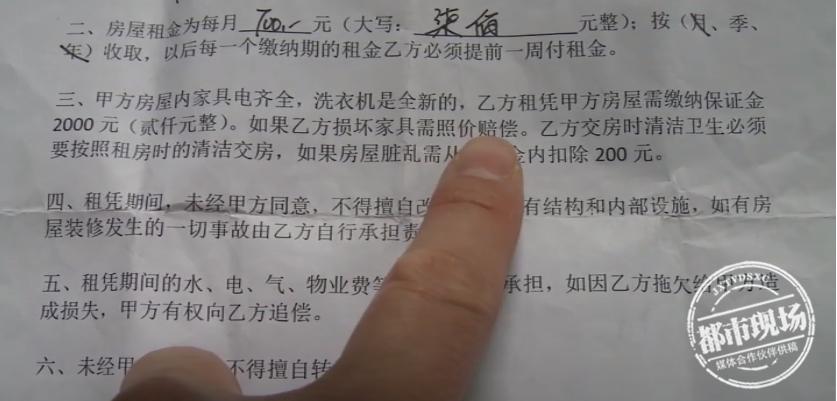 二、房屋租金为每月 700.- 元（大写： 柒佰 元整）；按（月、季、
年）收取，以后每一个缴纳期的租金乙方必须提前一周付租金。
三、甲方房屋内家具电齐全，洗衣机是全新的，乙方租凭甲方房屋需缴纳保证金
2000 元（贰仟元整）。如果乙方损坏家具需照价赔偿。乙方交房时清洁卫生必须
要按照租房时的清洁交房，如果房屋脏乱需从 金内扣除 200 元。
四、租凭期间，未经甲方同意，不得擅自改 有结构和内部设施，如有房
屋装修发生的一切事故由乙方自行承担责
五、租凭期间的水、电、气、物业费等 承担，如因乙方拖欠给甲方造
成损失，甲方有权向乙方追偿。
六、未经甲 不得擅自转
SXTVDSXC
都市现场
媒体合作伙伴供稿